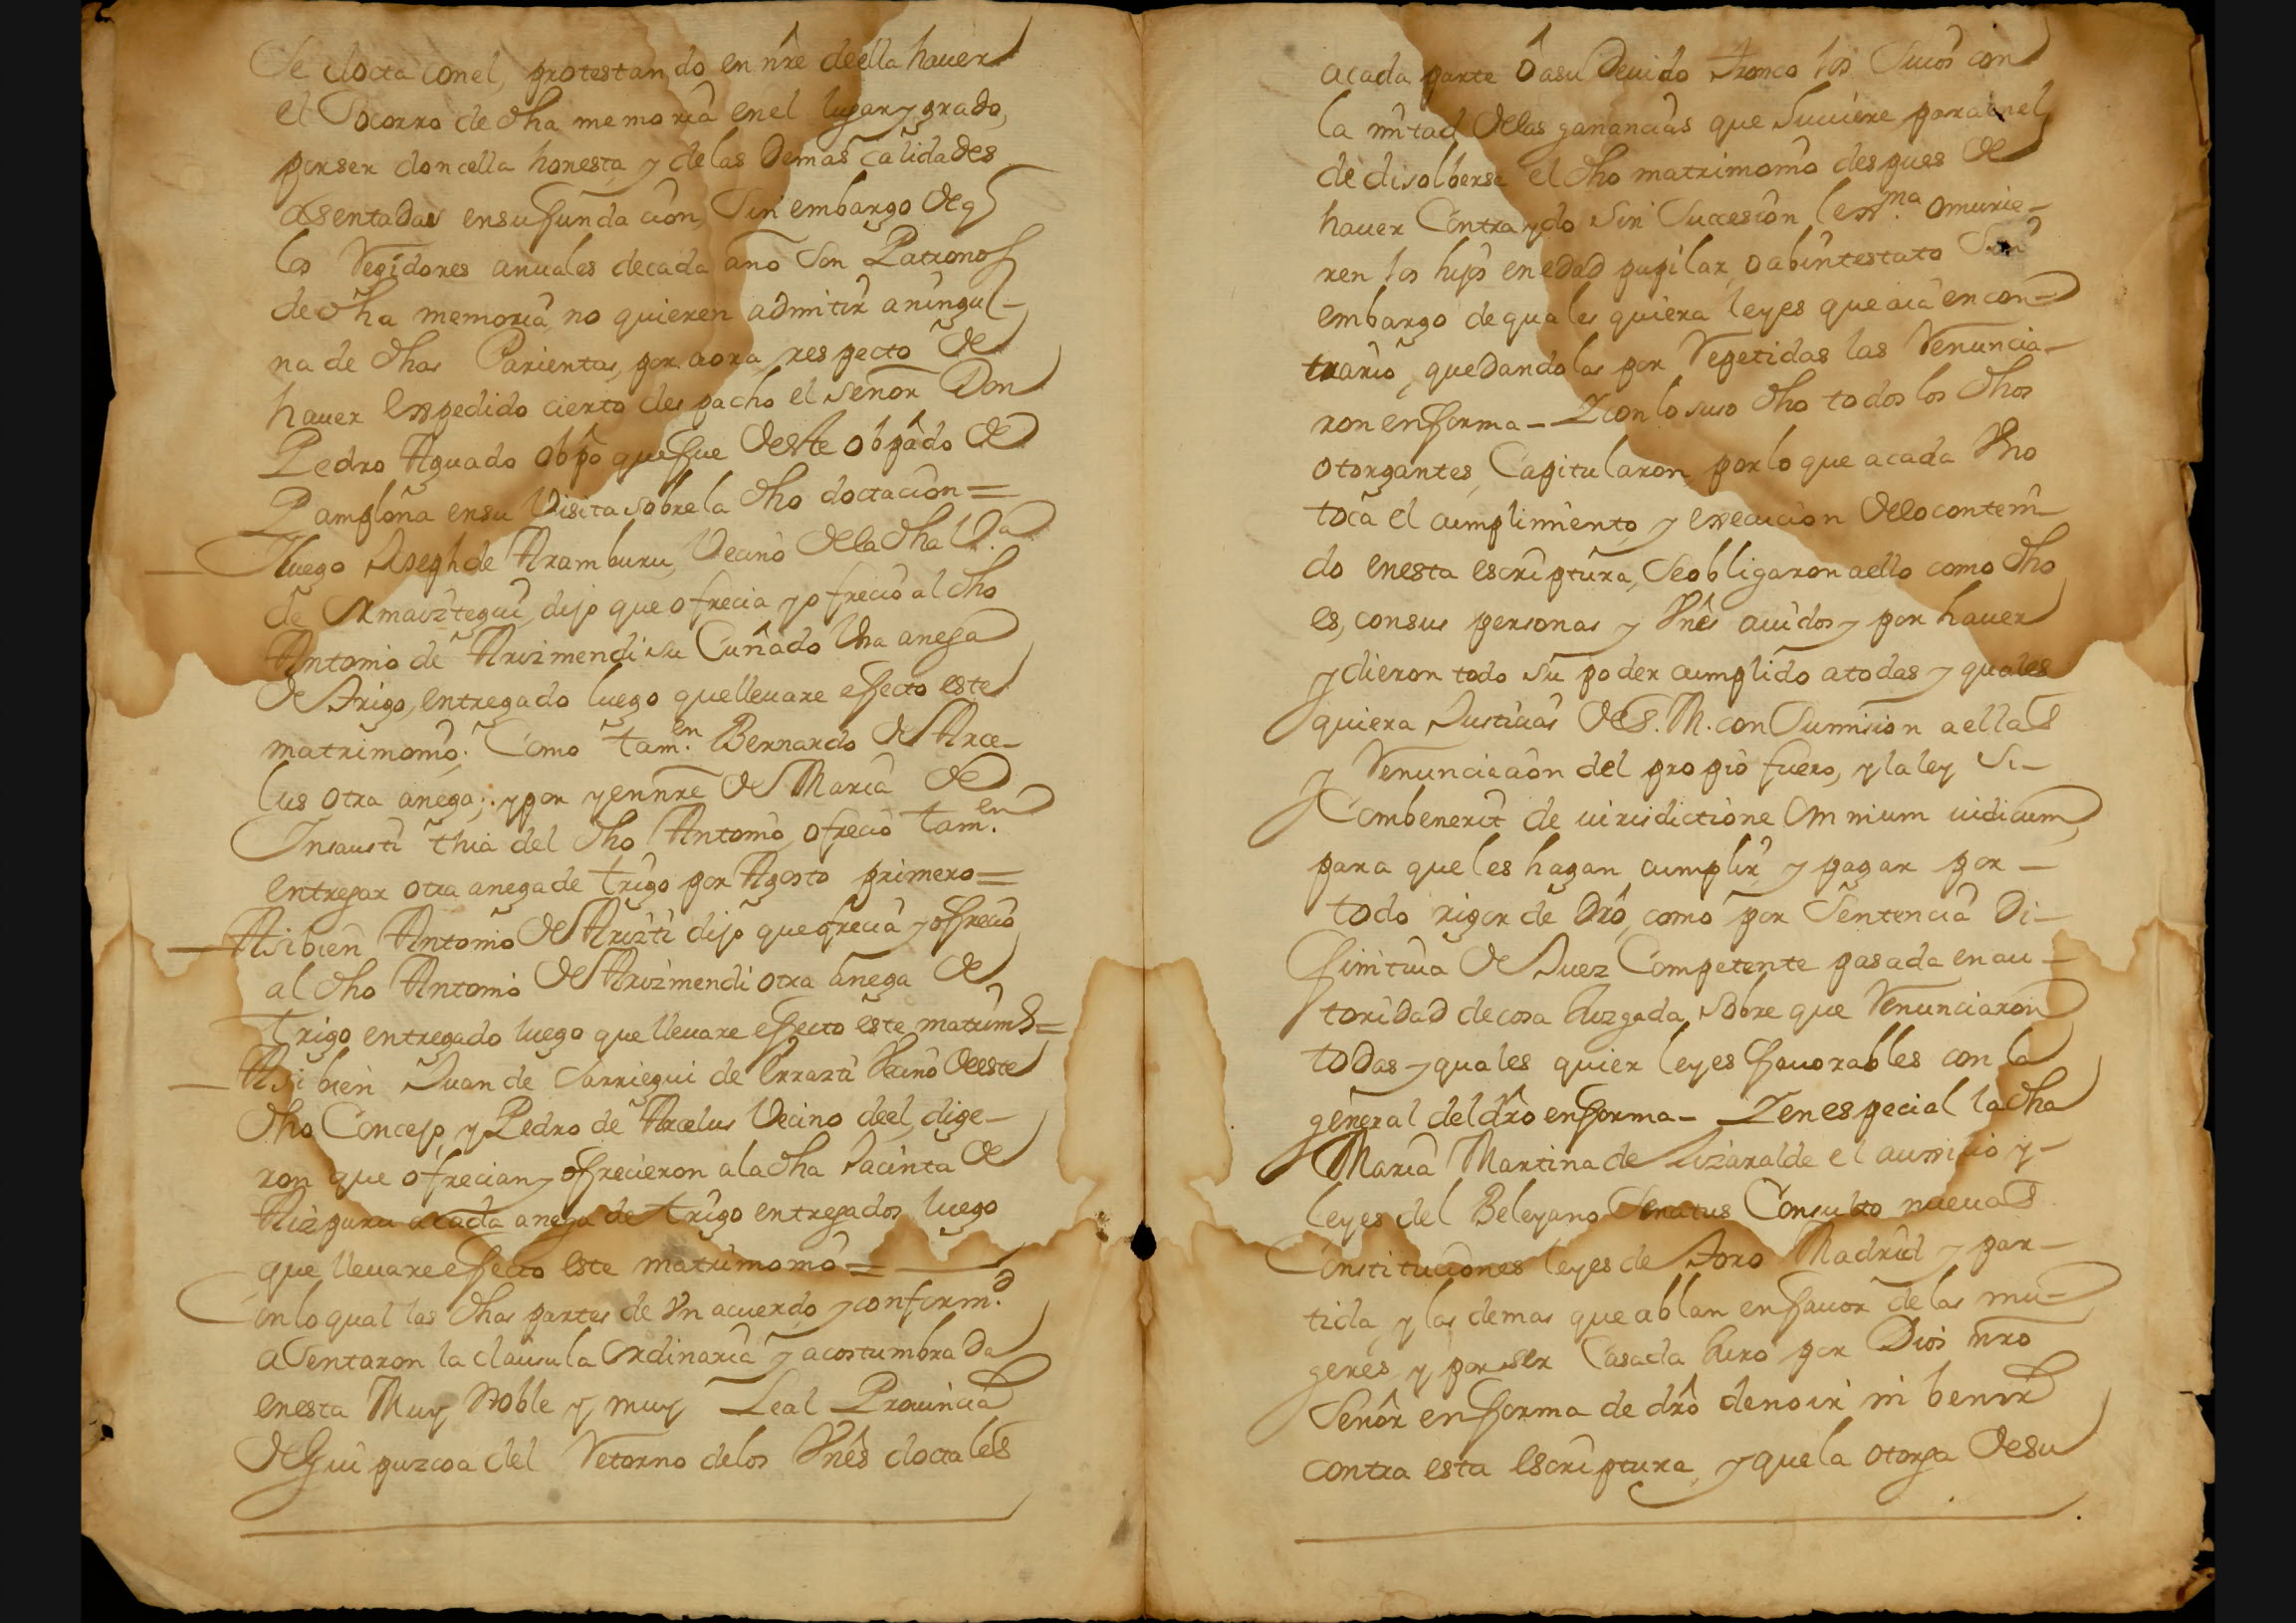 Se docta conel, protestando en nre deella hauer
el Socorro de dha memoria enel lugar y grado,
por ser doncella honesta, y delas Demas calidades
asentadas ensufundacion, Sin embargo deq
los Regidores anuales decada año Son Patronos
dedha memoria, no quieren admitir aningu-
na de dhas Parientas, por aora, respecto de
hauer expedido cierto despacho el señor Don
Pedro Aguado Obpo quefue deste obpado de
Pamplona ensu Visita sobrela dho doctacion =
Y luego Joseph de Aramburu, Vecino dela dha V.a
de Ormaiztegui, dijo que ofrecia y ofrecio al dho
Antonio de Arizmendi su Cuñado Una anega
de Trigo, entregado luego quelleuare efecto este
matrimonio; Como tam.en Bernardo de Arce-
lus otra anega; y por y ennre de Maria de
Insausti thia del dho Antonio, ofrecio tam.en
entregar otra anega de trigo por Agosto primero =
Asibien Antonio de Arizti dijo que ofrecia y ofrecio
al dho Antonio de Arizmendi otra anega de
trigo entregado luego que lleuare efecto este matrim.o =
Asibien Juan de Sarriegui de Errazti Vecino deeste
dho Concejo, y Pedro de Arcelus Vecino deel, dije-
ron que ofrecian y ofrecieron ala dha Jacinta de
Aizpuru acada anega de trigo entregados luego
que lleuare efecto este matrimonio =
Conlo qual las dhas partes de Vn acuerdo, y conform.d
asentaron la clausula ordinaria y acostumbrada
enesta Muy Noble y muy Leal Prouincia
de Guipuzcoa del Retorno delos Vnes doctales
acada parte ô asu Deuido tronco los Suios con
la mitad delas ganancias que Suuiere paraenel
de disolberse el dho matrimonio despues de
hauer Contraydo sin Sucesion lexma o murie-
ren los hijos en edad pupilar, o abintestato Sin
embargo de quales quiera leyes que aia encon-
trario, quedandolas por Repetidas las Renuncia-
ron enforma - Y con lo suso dho todos los dhos
otorgantes, Capitularon, por lo que acada Vno
toca el cumplimiento, y execucion delo conteni-
do enesta escriptura, Se obligaron aello como dho
es, consus personas y Vnes auidos y por hauer
y dieron todo su poder cumplido atodas y quales
quiera Justicias de S. M. con Sumision aellas
y Renunciacion del propio fuero, y la ley Si-
Combenerit de iurisdictione Omnium iudicum,
para que les hagan cumplir, y pagar por -
todo rigor de Dro, como por Sentencia Di-
finitiua de Juez Competente pasada en au-
toridad de cosa Juzgada, sobre que Renunciaron
todas y quales quier leyes fauorables con la
general del dro enforma - Y en especial la dha
Maria Martina de Lizaralde el auxilio y -
leyes del Beleyano Senatus Consulto nueuas
Constituciones leyes de Toro Madrid y par-
tida, y las demas que ablan enfauor de las mu-
geres, y por ser Casada Juro por Dios nro
Señor enforma de dro de no ir ni benir
contra esta escriptura, y que la otorga desu